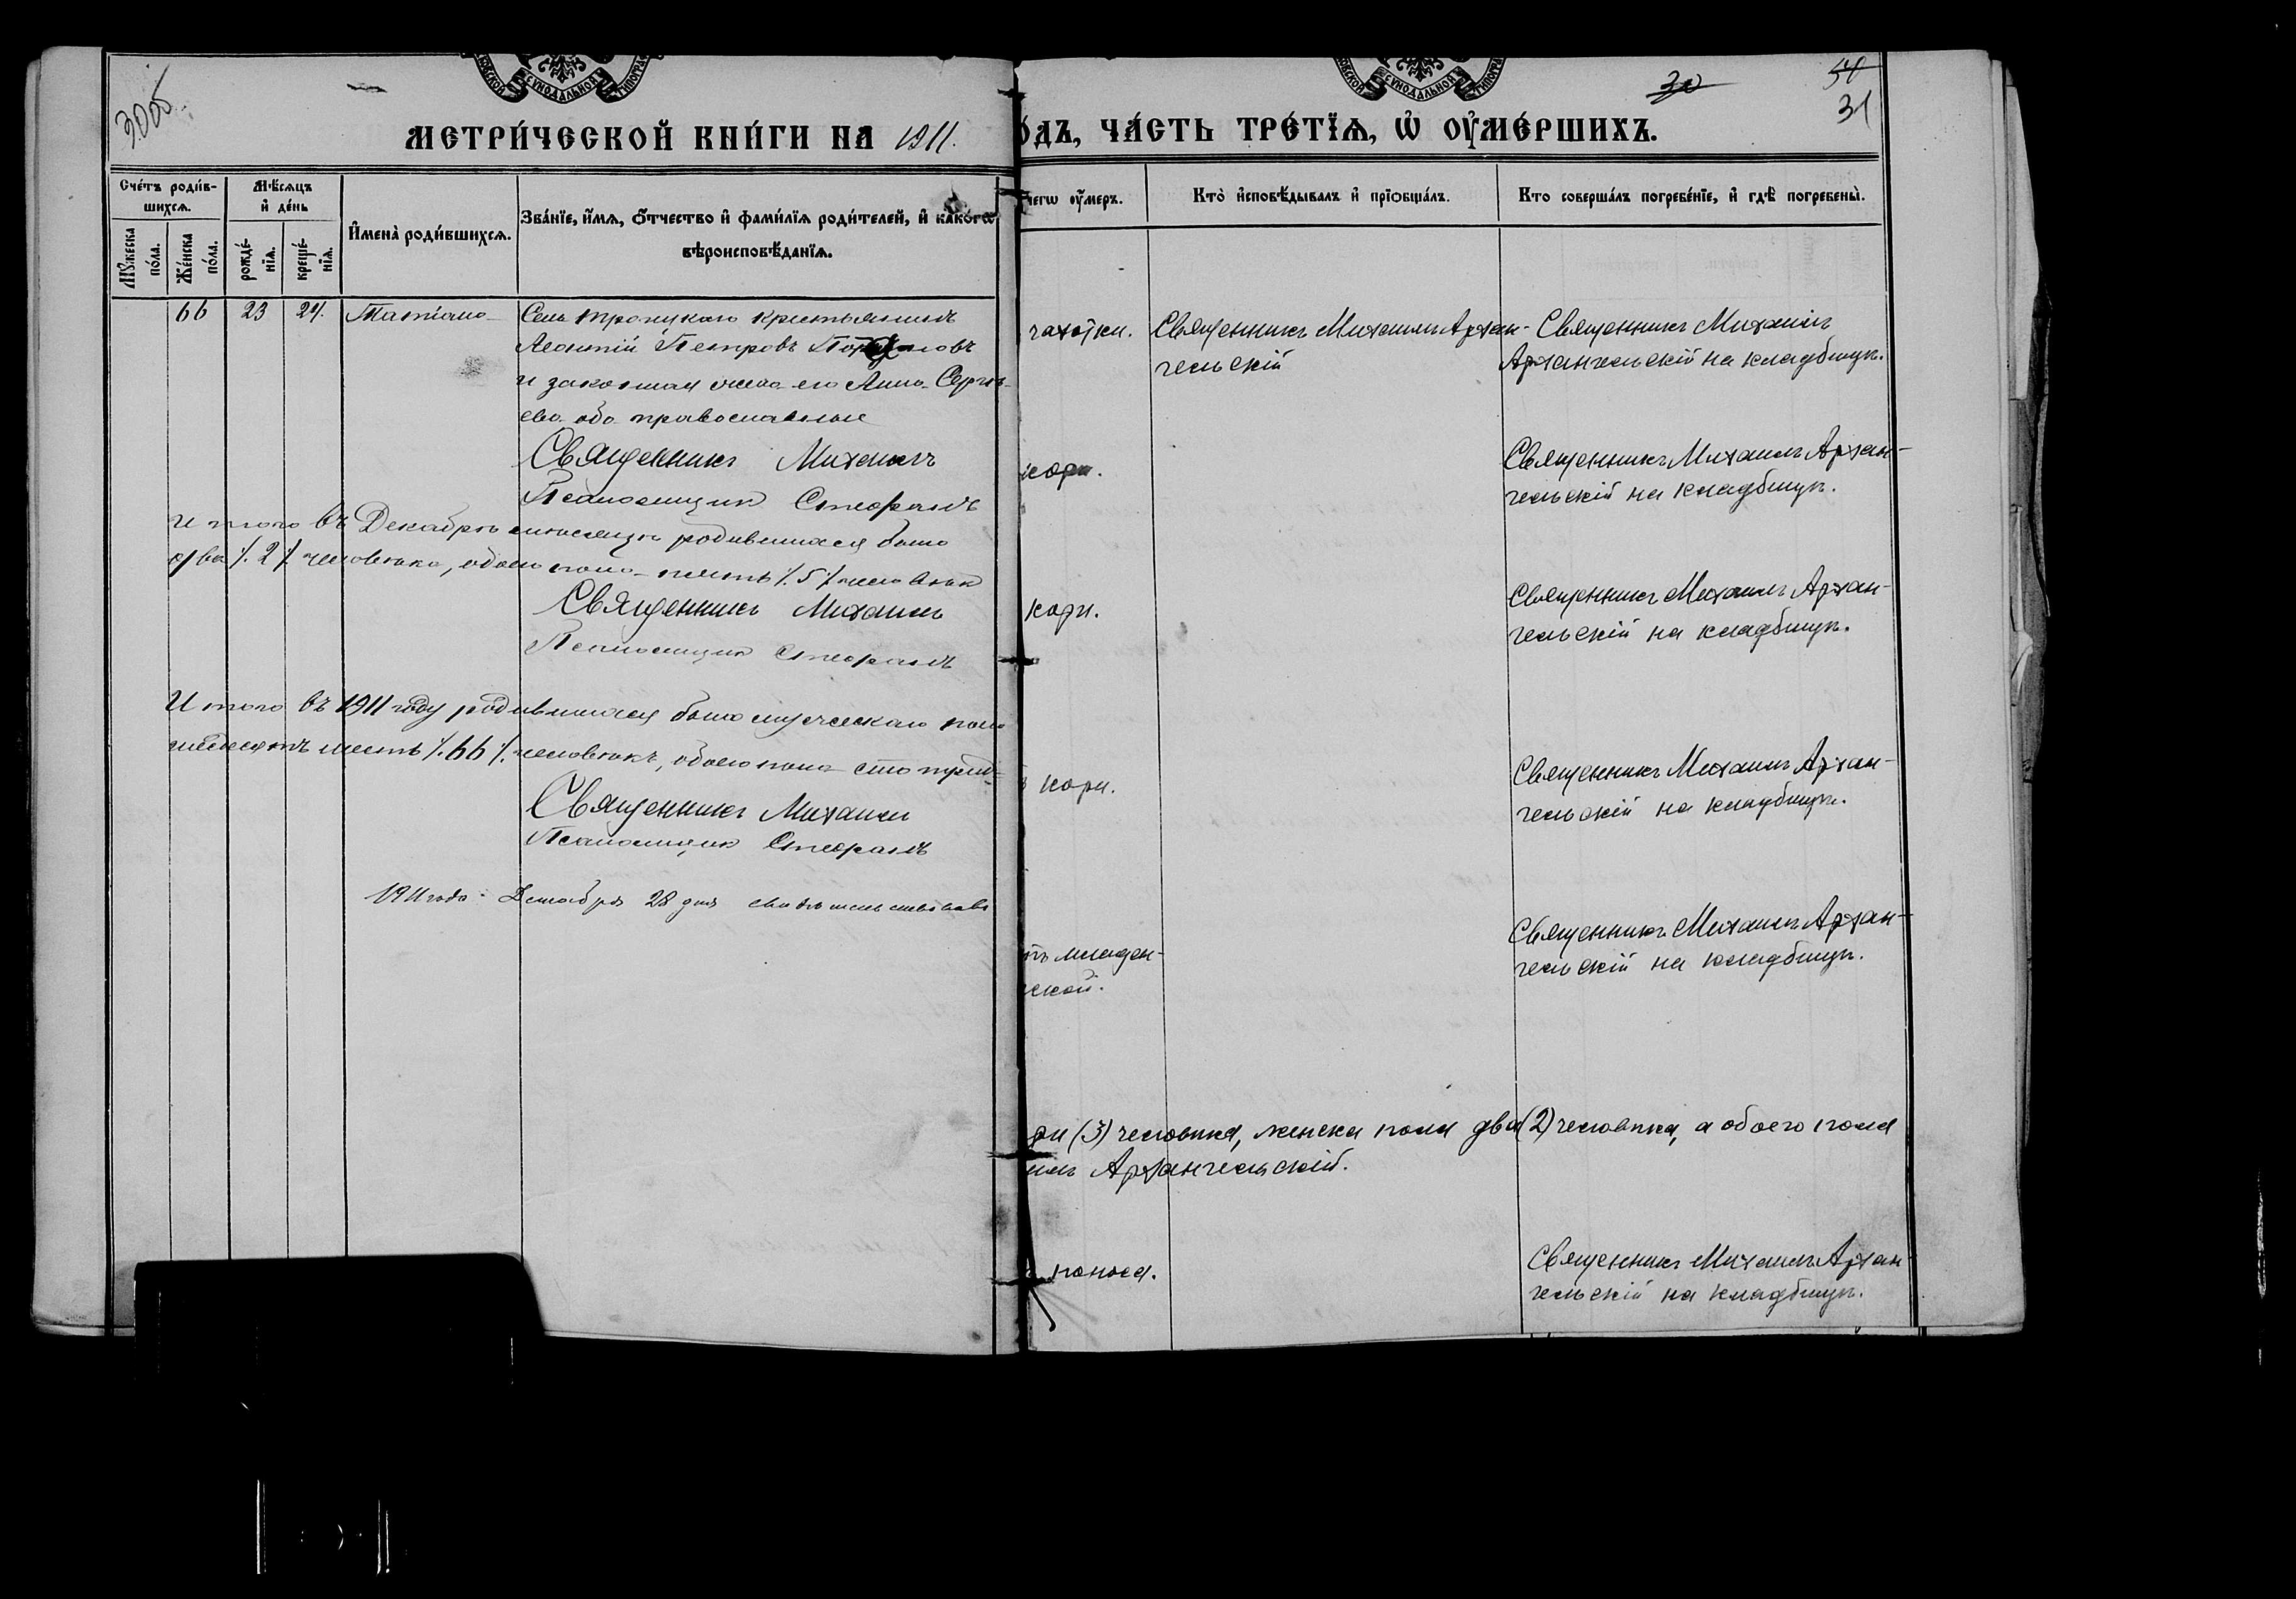 3005
МЕТРИ́ЧЕСКОЙ КНИ́ГИ НА 1911.
Сче́тъ роди́в-
шихсѧ.
Мꙋ́жеска по́ла.
Же́нска по́ла.
Мѣ́сѧцъ и҆ де́нь
рожде́-
нїѧ.
креще́-
нїѧ.
И҆мена̀ роди́вшихсѧ.
Зва́нїе, и҆́мѧ, ѻ҆́тчество и҆ фами́лїѧ роди́телей, и҆ како́гѡ
вѣроисповѣ́данїѧ.
66 23 24. Татіана
Села Троицкаго крестьянинъ
Леонтій Петровъ
и законная жена его Анна Сергѣ-
ева оба православные
Священникъ Михаилъ
Псаломщикъ Стефанъ
Итого въ Декабрѣ мѣсяцѣ родившихся было
два /.2/. человѣка, обоего пола пять /.5/. человѣкъ
Священникъ Михаилъ
Псаломщикъ Стефанъ
Итого въ 1911 году родившихся было мужескаго пола
шестьдесятъ шесть /.66/. человѣкъ, обоего пола сто трид-
Священникъ Михаилъ
Псаломщикъ Стефанъ
1911 года Декабря 28 дня свидѣтельствовалъ
30
54
31
о́дъ, ЧА́СТЬ ТРЕ́ТЇѦ, Ѡ҆ ОУ҆МЕ́РШИХЪ.
чегѡ оу҆́меръ.
Кто̀ и҆сповѣ́дывалъ и҆ прїѻбща́лъ.
Кто соверша́лъ погребе́нїе, и҆ гдѣ̀ погребены̀.
чахотки. Священникъ Михаилъ Архан-
гельскій
Священникъ Михаилъ
Архангельскій на кладбищѣ.
кори.
Священникъ Михаилъ Архан-
гельскій на кладбищѣ.
кори.
Священникъ Михаилъ Архан-
гельскій на кладбищѣ.
кори.
Священникъ Михаилъ Архан-
гельскій на кладбищѣ.
тъ младен-
ской.
Священникъ Михаилъ Архан-
гельскій на кладбищѣ.
ри (3) человѣка, женска пола два (2) человѣка, а обоего пола
илъ Архангельскій.
поноса.
Священникъ Михаилъ Архан-
гельскій на кладбищѣ.